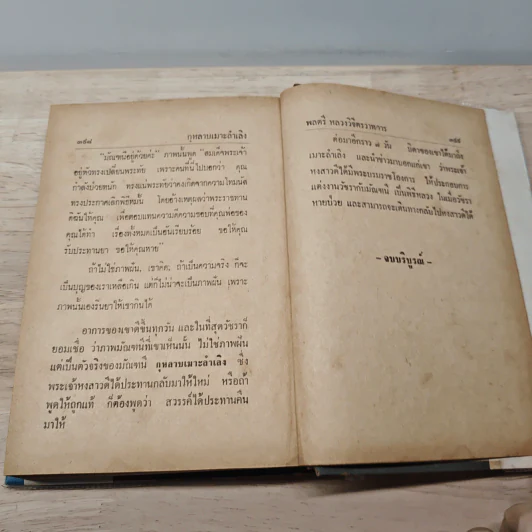 ๓๕๘
กุหลาบเมาะลำเลิง
"มัณฑนีอยู่ด้วยค่ะ" ภาพนั้นพูด "สมเด็จพระเจ้า
อยู่หัวทรงเปลี่ยนพระทัย เพราะคนที่ไปบอกว่า คุณ
กำลังป่วยหนัก ทรงแน่พระทัยว่าคงเกิดจากความโทมนัส
ทรงประกาศเลิกพิธีหมั้น โดยอ้างเหตุผลว่าพระราชทาน
ดิฉันให้คุณ เพื่อตอบแทนความดีความชอบที่คุณพ่อของ
คุณได้ทำ เรื่องทั้งหมดเป็นอันเรียบร้อย ขอให้คุณ
รับประทานยา ขอให้คุณหาย"
ถ้าไม่ใช่ภาพฝัน, เขาคิด; ถ้าเป็นความจริง ก็จะ
เป็นบุญของเราเหลือเกิน แต่ก็ไม่น่าจะเป็นภาพฝัน เพราะ
ภาพนั้นเองรินยาให้เขากินได้
อาการของเขาดีขึ้นทุกวัน และในที่สุดวัชราก็
ยอมเชื่อ ว่าภาพมัณฑนีที่เขาเห็นนั้น ไม่ใช่ภาพฝัน
แต่เป็นตัวจริงของมัณฑนี กุหลาบเมาะลำเลิง ซึ่ง
พระเจ้าหงสาวดีได้ประทานกลับมาให้ใหม่ หรือถ้า
พูดให้ถูกแท้ ก็ต้องพูดว่า สวรรค์ได้ประทานคืน
มาให้
พลตรี หลวงวิจิตรวาทการ
๓๕๙
ต่อมาอีกราว ๗ วัน บิดาของเขาได้มาถึง
เมาะลำเลิง และนำข่าวมาบอกแก่เขา ว่าพระเจ้า
หงสาวดีได้มีพระบรมราชโองการ ให้ประกอบการ
แต่งงานวัชรากับมัณฑนี เป็นพิธีหลวง ในเมื่อวัชรา
หายป่วย และสามารถจะเดินทางกลับไปหงสาวดีได้
- จบบริบูรณ์ -